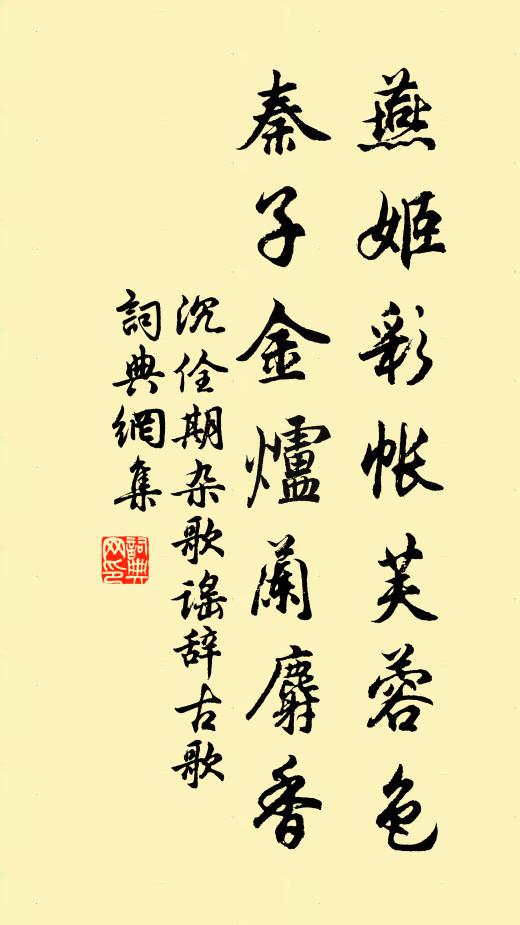 燕姬彩帐芙蓉色
秦子金爐蘭麝香
沉佺期杂歌谣辞古歌
詞典網集
詞典网印